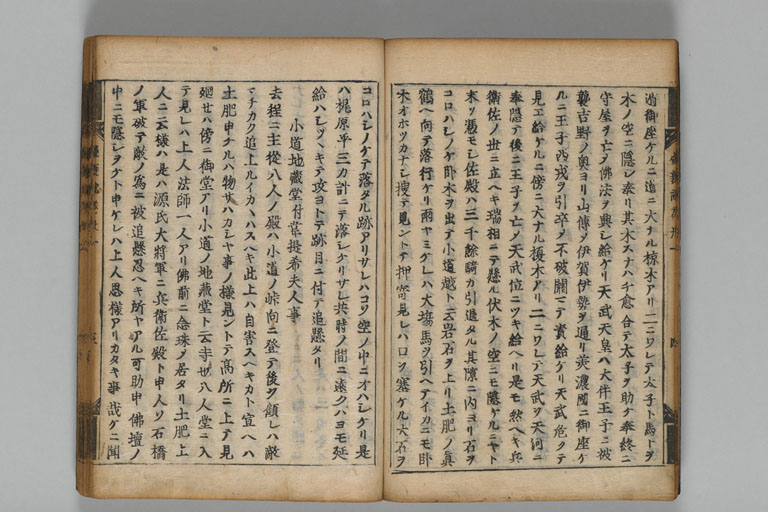 酒御座ケルニ道ニ大ナル椋木アリ二ニワレテ太子ト馬トヲ
木ノ空ニ隠シ奉リ其木スナハチ愈合テ太子ヲ助ケ奉終ニ
守屋ヲ亡ノ佛法ヲ興シ給ケリ天武天皇ハ大伴王子ニ被
襲吉野ノ奥ヨリ山傳ソ伊賀伊勢ヲ通リ美濃國ニ御座ケ
ルニ王子西戎ヲ引卒メ不破關マテ責給ケリ天武危クテ
見エ給ケルニ傍ニ大ナル榎木アリ二ニワレテ天武ヲ天河ニ
奉隠テ後ニ王子ヲ亡ノ天武位ニツキ給ヘリ是モ然ヘキ兵
衛佐ノ世ニ立ヘキ瑞相ニテ懸ル伏木ノ空ニモ隠ケルニヤト
末ソ憑モシ佐殿ハ三千餘騎カ引退タル其隙ニ内ヨリ石ヲ
コロハシノケ卧木ヲ出テ小道越ト云岩石ヲ上リ土肥ノ眞
鶴ヘ向テ落行ケリ雨ヤミケレハ大場馬ヲ引ヘテイカニモ卧
木オホツカナシ捜テ見ントテ押寄見レハ口ヲ塞ケル大石ヲ
コロハシノケテ落タル跡アリサレハコソ空ノ中ニオハシケリ是
ハ梶原平三カ計ニテ落シケリサレ共時ノ間ニ遠クハヨモ延
給ハシツヽキテ攻ヨトテ跡目ニ付テ追懸タリ
小道地藏堂付韋提希夫人事
去程ニ主從八人ノ殿ハ小道ノ峠向ニ登テ後ヲ顧レハ敵
マチカク追上ルイカヽハスヘキ此上ハ自害スヘキカト宣ヘハ
土肥申ケルハ物サハカシヤ事ノ様見ントテ高所ニ上テ見
廻セハ傍ニ御堂アリ小道ノ地藏堂ト云寺也八人堂ニ入
テ見レハ上人法師一人アリ佛前ニ念珠ノ居タリ土肥上
人ニ云様ハ是ハ源氏大將軍ニ兵衛佐殿ト申人ソ石橋
ノ軍破テ敵ノ爲ニ被追懸忍ヘキ所ヤアル可助申佛壇ノ
中ニモ隠シヲケト申ケレハ上人思様アリカタキ事哉ケニ聞